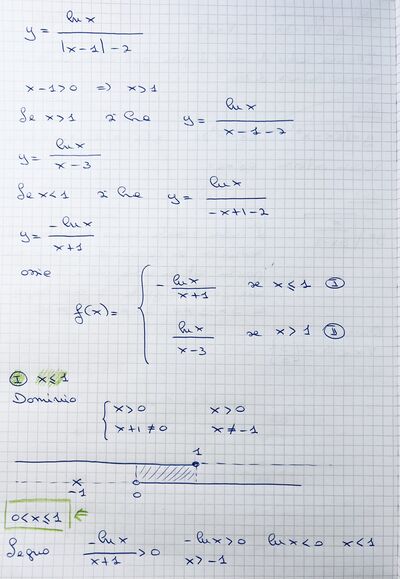 y = ln x / (|x-1| - 2)
x-1>0 => x>1
Se x>1 si ha y = ln x / (x-1-2)
y = ln x / (x-3)
Se x<1 si ha y = ln x / (-x+1-2)
y = -ln x / (x+1)
ossia
f(x) = { - ln x / (x+1) se x ≤ 1 (I)
ln x / (x-3) se x > 1 (II)
(I) x ≤ 1
Dominio { x>0 x>0
x+1≠0 x≠-1
1
x
-1 0
0<x≤1 ⇐
Segno -ln x / (x+1) > 0 -ln x>0 ln x<0 x<1
x>-1